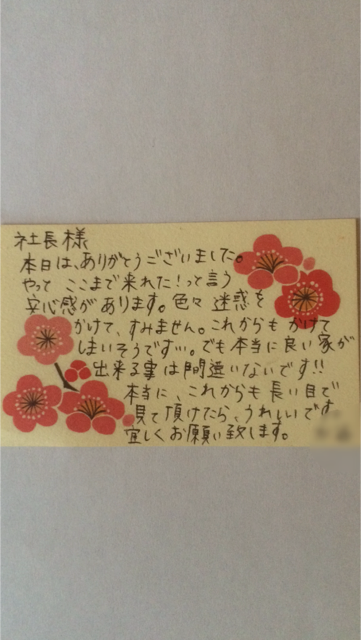 社長様
本日は、ありがとうございました。
やって ここまで来れた!って言う
安心感があります。色々 迷惑を
かけて、すみません。これからも かけて
しまいそうです…。でも本当に良い家が
出来る事は間違いないです!!
本当に、これからも長い目で
見て頂けたら、うれしいです
宜しくお願い致します。